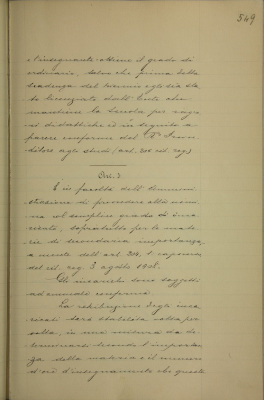 549
l'insegnante ottiene il grado di
ordinario, salvo che prima della
scadenza del termine egli sia sta
to licenziato dall'Ente che
mantiene la Scuola per ragio
ni didattiche ed in seguito a
parere conforme del R° Provve
ditore agli studi (art. 205 cit. reg.)
Art. 7.
È in facoltà dell'Ammini
strazione di procedere alla nomi
na col semplice grado di inca
ricato, soprattutto per le mate
rie di secondaria importanza,
a mente dell'art. 204, 1° capoverso
del cit. reg. 3 agosto 1908.
Gli incarichi sono soggetti
ad annuale conferma.
La retribuzione degli inca
ricati sarà stabilita volta per
volta, in una misura da de
terminarsi secondo l'importan
za della materia e il numero
d'ore d'insegnamento che questa